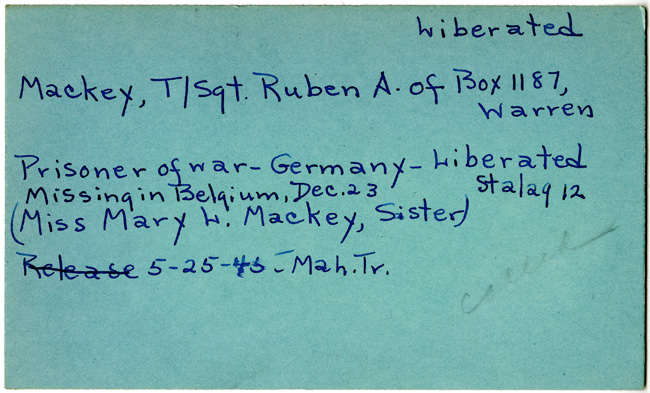 Liberated
Mackey, T/Sgt. Ruben A. of Box 1187,
Warren
Prisoner of war - Germany - Liberated
Missing in Belgium, Dec. 23 Stalag 12
(Miss Mary L. Mackey, Sister)
Release 5-25-45 - Mah. Tr.
called